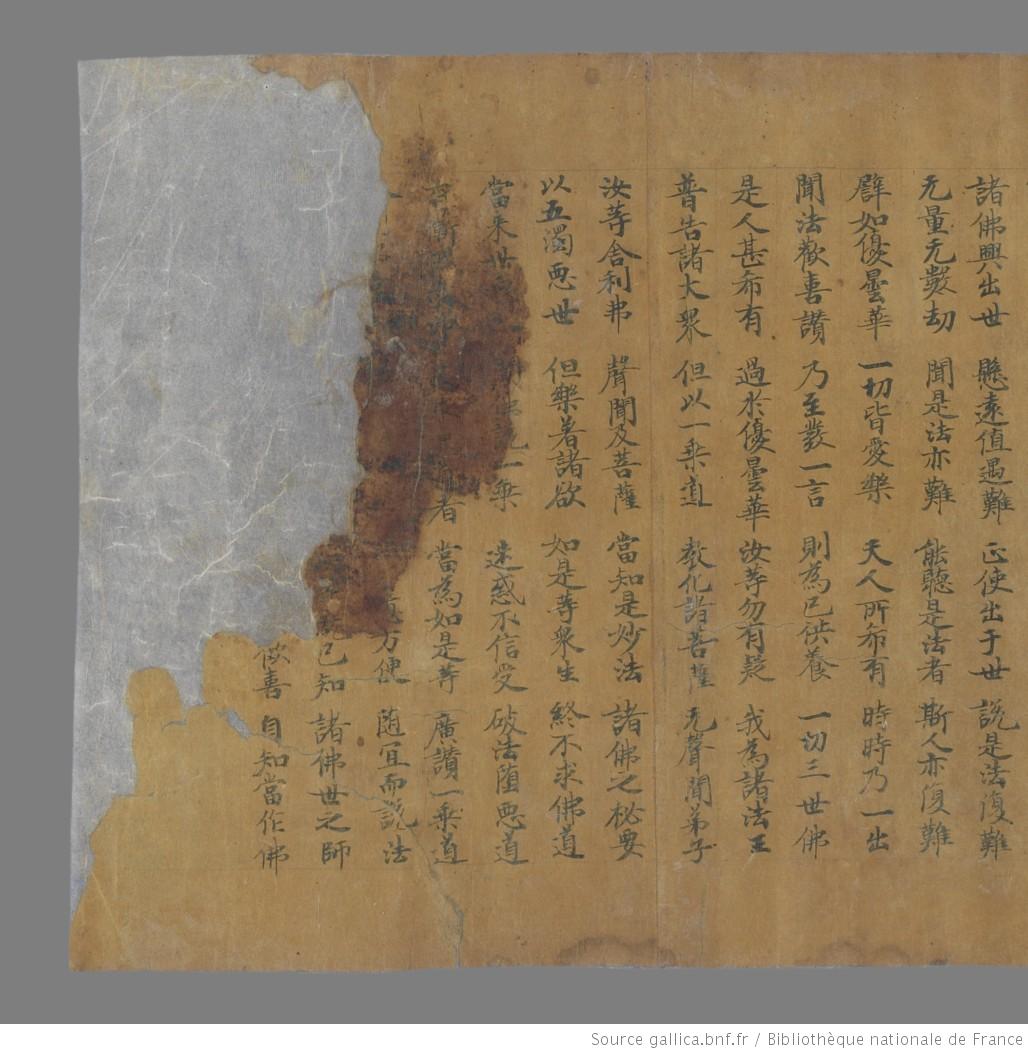 諸佛興出世 懸遠值遇難 正使出于世 説是法復難
无量无數劫 聞是法亦難 能聽是法者 斯人亦復難
辟如優曇華 一切皆愛樂 天人所希有 時時乃一出
聞法歡喜讚 乃至發一言 則為已供養 一切三世佛
是人甚希有 過於優曇華 汝等勿有疑 我為諸法王
普告諸大衆 但以一乘道 教化諸菩薩 无聲聞弟子
汝等舍利弗 聲聞及菩薩 當知是妙法 諸佛之秘要
以五濁惡世 但樂著諸欲 如是等衆生 終不求佛道
當来世 説一乘 迷惑不信受 破法堕惡道
者 當為如是等 廣讚一乘道
方便 随宜而說法
已知 諸佛世之師
喜 自知當作佛
Source gallica.bnf.fr / Bibliothèque nationale de France